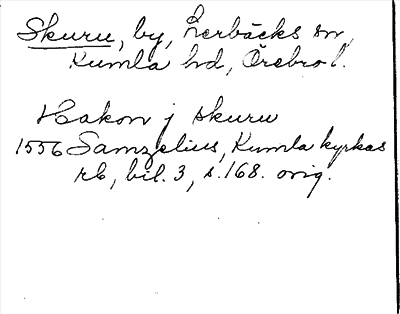 Skuru, by, Lerbäcks sn,
Kumla hd, Örebro l.
Hakon j skuru
1556 Samzelius, Kumla kyrkas
rb, bil. 3, s. 168. orig.